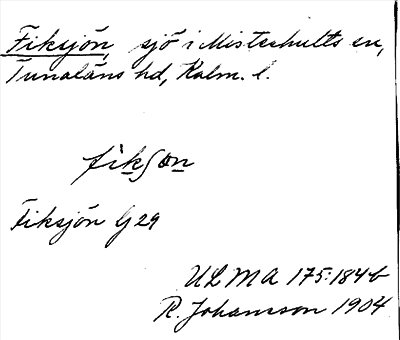 Fiksjön, sjö i Misterhults sn,
Tunaläns hd, Kalm. l.
fìkʃøn
Fiksjön G 29
ULMA 175:184 b
R. Johansson 1904